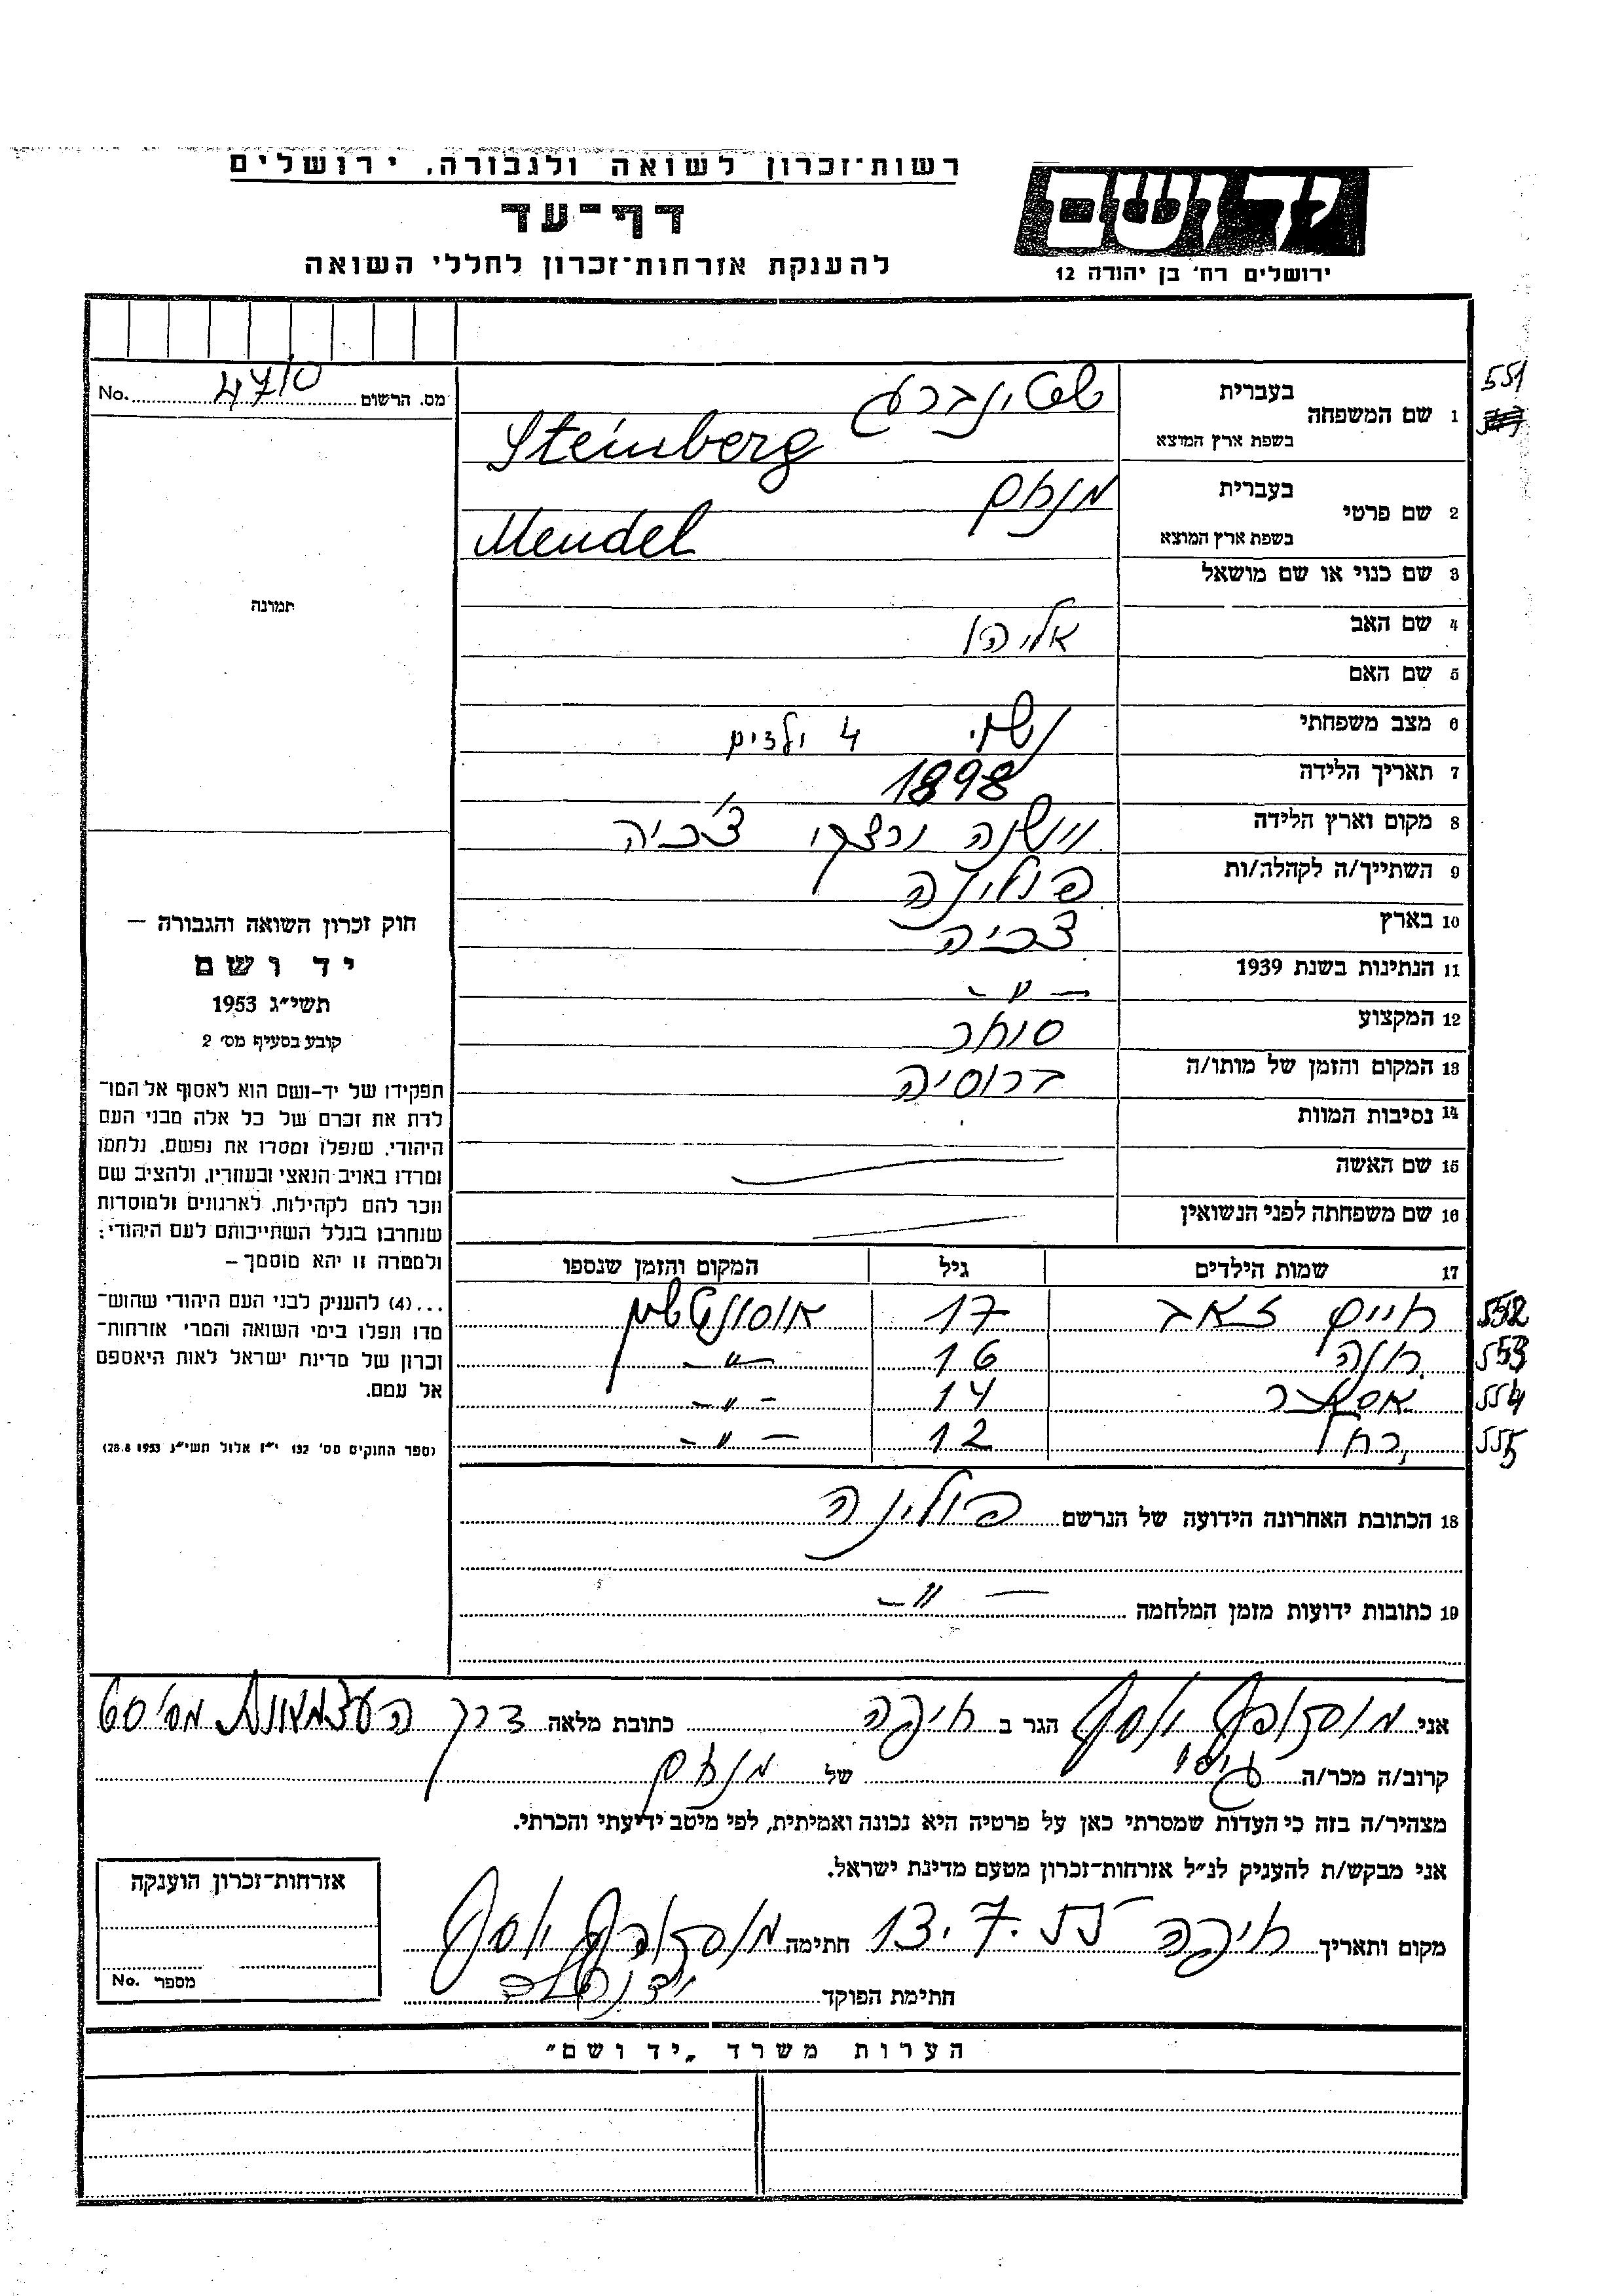 רשות־זכרון לשואה ולגבורה, ירושלים
דף־עד
להענקת אזרחות־זכרון לחללי השואה
יד ושם
ירושלים רח' בן יהודה 12
551
מס. הרשום 4710 No.
1 שם המשפחה
בעברית שטינברג
בשפת ארץ המוצא Steinberg
2 שם פרטי
בעברית מנחם
בשפת ארץ המוצא Mendel
3 שם כנוי או שם מושאל
4 שם האב אליהו
5 שם האם
6 מצב משפחתי נשוי 4 ילדים
7 תאריך הלידה 1898
8 מקום וארץ הלידה צ'כיה
9 השתייך/ה לקהלה/ות פולינה
10 בארץ צכיה
11 הנתינות בשנת 1939 — " —
12 המקצוע סוחר
13 המקום והזמן של מותו/ה ברוסיה
14 נסיבות המוות
15 שם האשה
16 שם משפחתה לפני הנשואין
תמונה
חוק זכרון השואה והגבורה —
יד ושם
תשי"ג 1953
קובע בסעיף מס' 2
תפקידו של יד-ושם הוא לאסוף אל המו־
לדת את זכרם של כל אלה מבני העם
היהודי, שנפלו ומסרו את נפשם, נלחמו
ומרדו באויב הנאצי ובעוזריו, ולהציב שם
וזכר להם לקהילות, לארגונים ולמוסדות
שנחרבו בגלל השתייכותם לעם היהודי;
ולמטרה זו יהא מוסמך —
...(4) להעניק לבני העם היהודי שהוש־
מדו ונפלו בימי השואה והמרי אזרחות־
זכרון של מדינת ישראל לאות היאספם
אל עמם.
(ספר החוקים מס' 132 י"ז אלול תשי"ג 28.8.1953)
17 שמות הילדים גיל המקום והזמן שנספו
552 חיים זאב 17 אוסונצשים
553 חנה 16 — " —
554 אסתר 14 — " —
555 רחל 12 — " —
18 הכתובת האחרונה הידועה של הנרשם פולינה
19 כתובות ידועות מזמן המלחמה — " —
אני יוסף הגר ב חיפה כתובת מלאה דרך העצמאות מס' 60
קרוב/ה מכר/ה גיסו של מנחם
מצהיר/ה בזה כי העדות שמסרתי כאן על פרטיה היא נכונה ואמיתית, לפי מיטב ידיעתי והכרתי.
אני מבקש/ת להעניק לנ"ל אזרחות־זכרון מטעם מדינת ישראל.
מקום ותאריך חיפה 13.7.55 חתימה יוסף
חתימת הפוקד
אזרחות־זכרון הוענקה
מספר No.
הערות משרד "יד ושם"